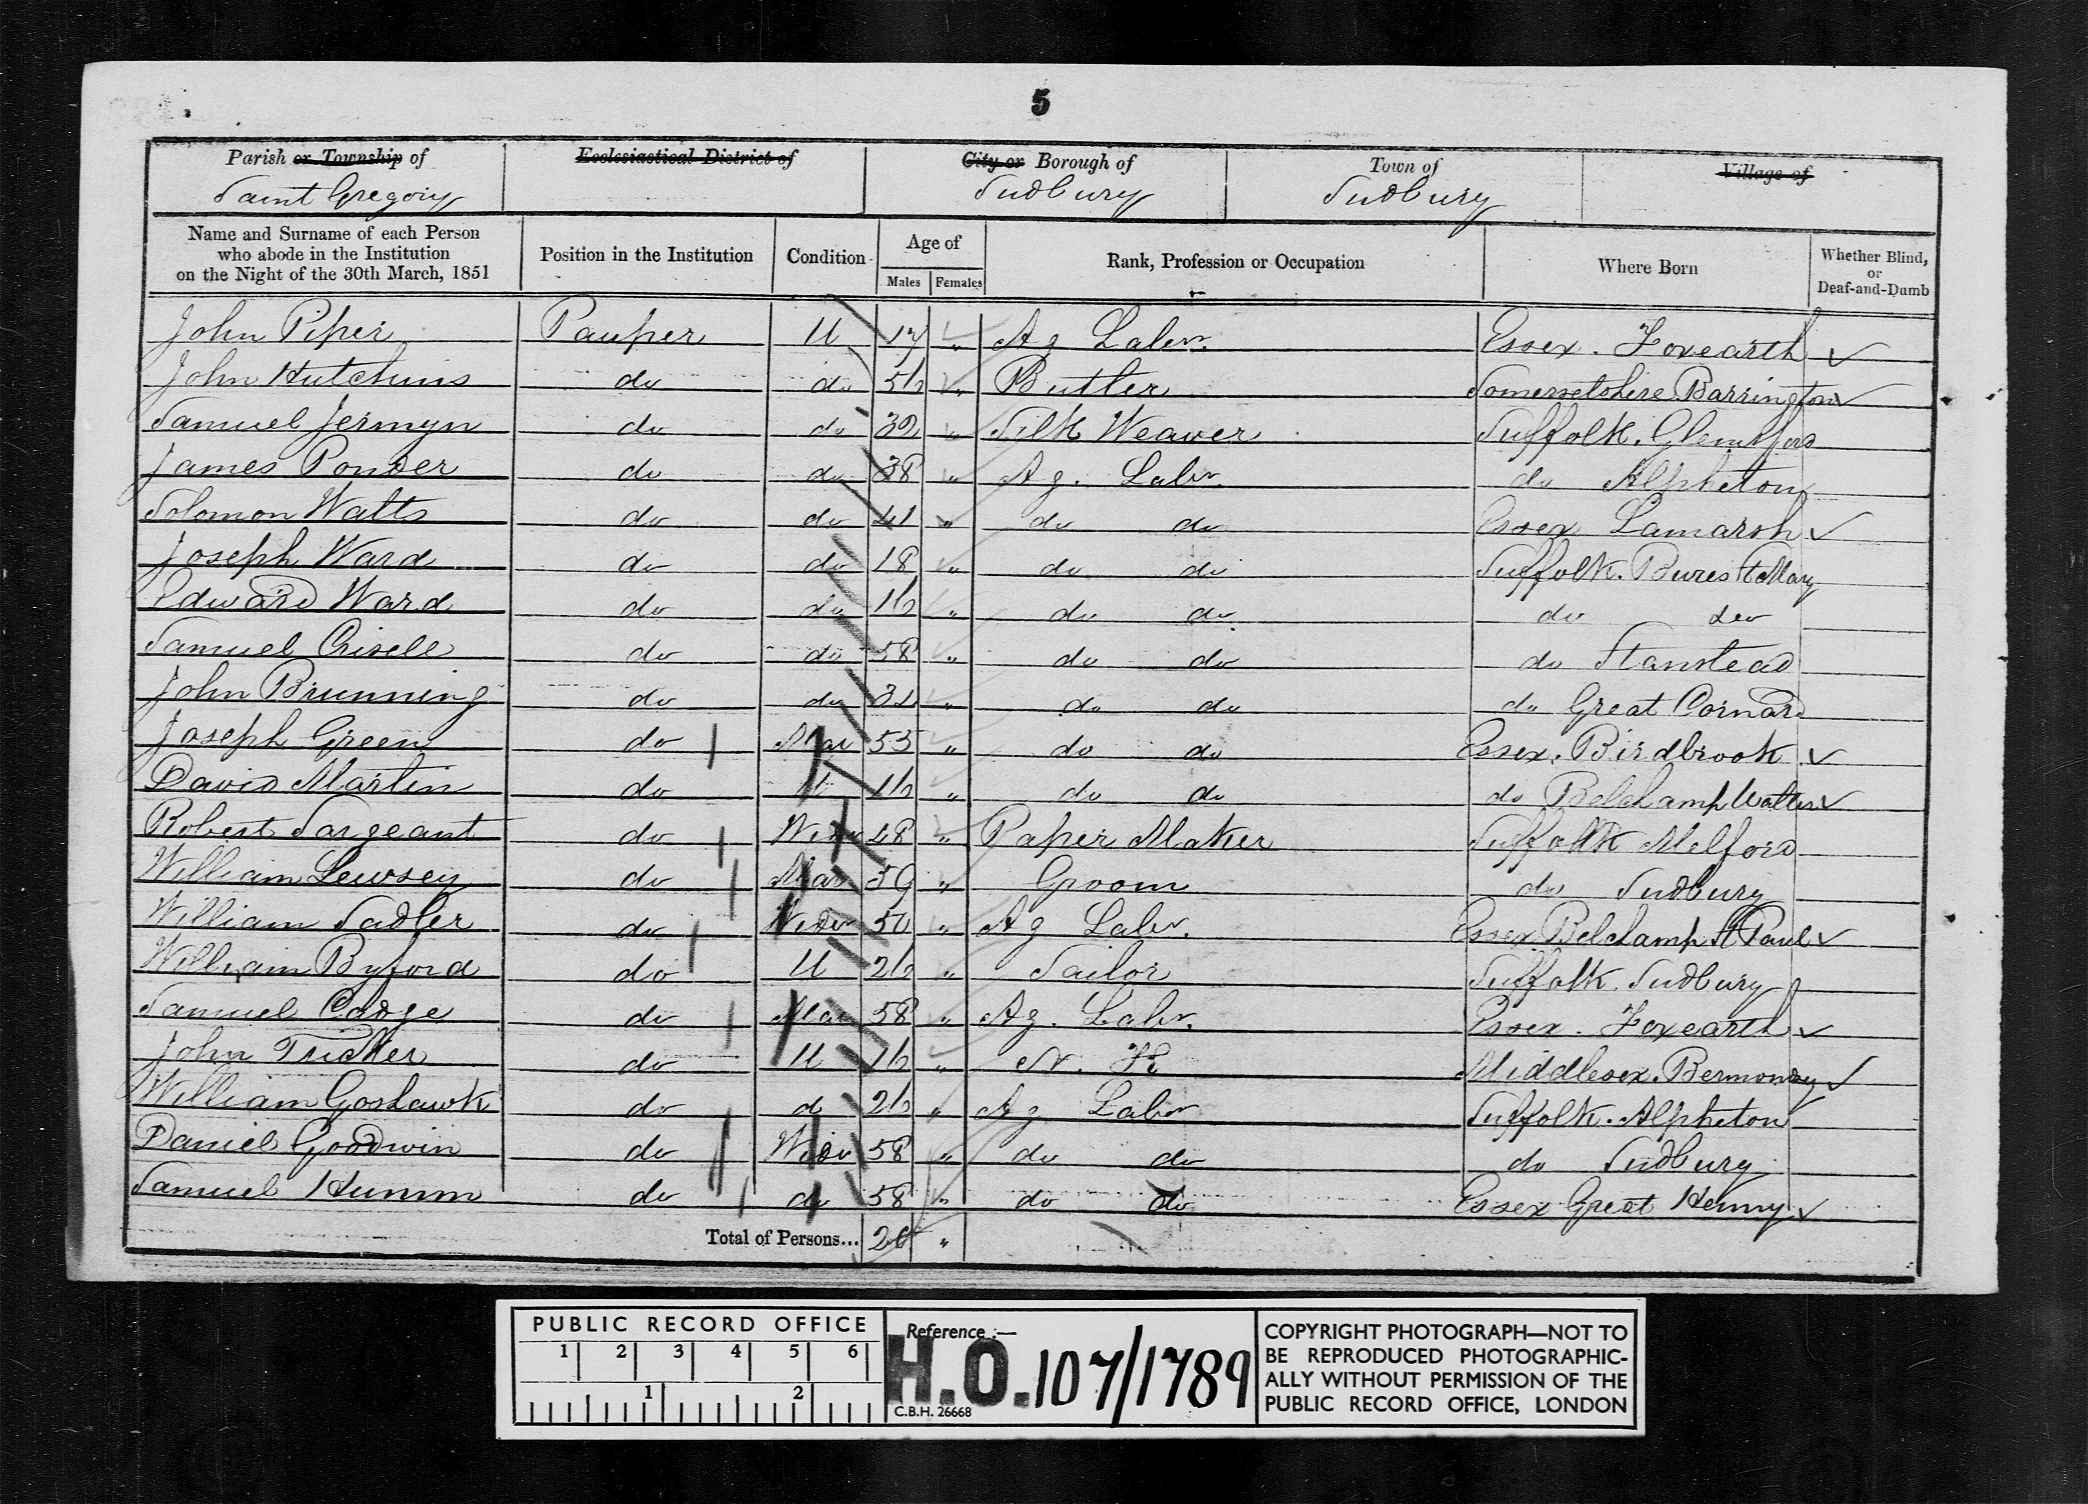 5
Parish or Township of Ecclesiastical District of City or Borough of Town of Village of
Saint Gregory Sudbury Sudbury
Name and Surname of each Person who abode in the Institution on the Night of the 30th March, 1851 Position in the Institution Condition Age of Males Females Rank, Profession or Occupation Where Born Whether Blind, or Deaf-and-Dumb
John Piper Pauper U 17 " Ag Labr. Essex. Foxearth ✓
John Hutchins do do 56 " Butler Somersetshire Barrington ✓
Samuel Jermyn do do 32 " Silk Weaver Suffolk. Glemsford
James Ponder do do 38 " Ag. Labr. do Alpheton
Solomon Watts do do 41 " do do Essex Lamarsh ✓
Joseph Ward do do 18 " do do Suffolk. Bures St Mary
Edward Ward do do 16 " do do do do
Samuel Crisell do do 58 " do do do Stanstead
John Brunning do do " do do do Great Cornard
Joseph Green do Mar 55 " do do Essex. Birdbrook ✓
David Martin do U 16 " do do do Belchamp Walter ✓
Robert Sargeant do Widr 48 " Paper Maker Suffolk Melford
William Lewsey do Mar 39 " Groom do Sudbury
William Sadler do Widr 50 " Ag Labr. Essex Belchamp St Paul ✓
William Byford do U 26 " Sailor Suffolk Sudbury
Samuel Cadge do Mar 58 " Ag. Labr. Essex. Foxearth ✓
John Tricker do U 16 " N. K. Middlesex. Bermondsey ✓
William Goshawk do d 26 " Ag Labr Suffolk. Alpheton
Daniel Goodwin do Widr 58 " do do do Sudbury
Samuel Humm do do 58 " do do Essex Great Henny ✓
Total of Persons... 20 "
PUBLIC RECORD OFFICE
1 2 3 4 5 6
1 2
Reference :—
H.O. 107/1789
C.B.H. 26668
COPYRIGHT PHOTOGRAPH—NOT TO
BE REPRODUCED PHOTOGRAPHIC-
ALLY WITHOUT PERMISSION OF THE
PUBLIC RECORD OFFICE, LONDON